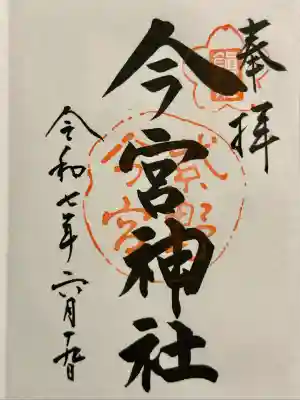 奉拝
今宮神社
令和七年六月十九日